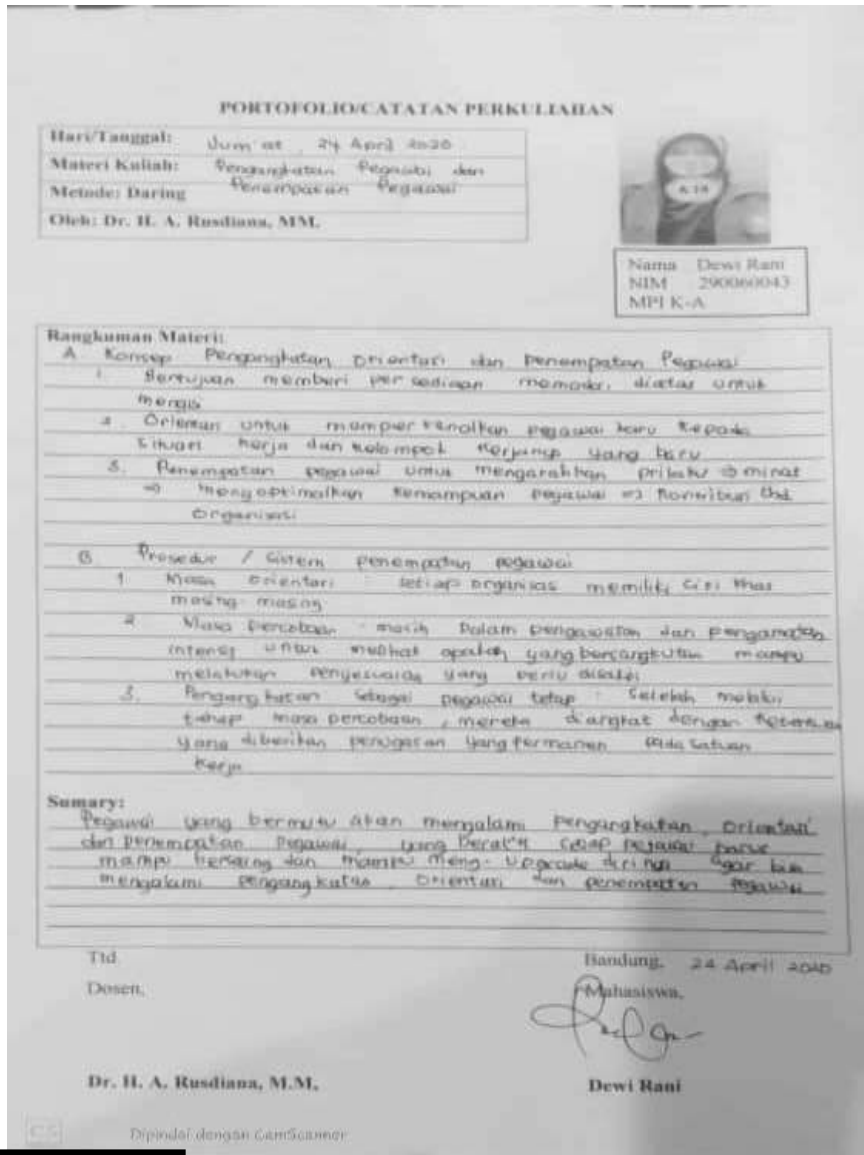 PORTOFOLIO/CATATAN PERKULIAHAN
Hari/Tanggal: Jum'at, 24 April 2020
Materi Kuliah: Pengangkatan Pegawai dan
Penempatan Pegawai
Metode: Daring
Oleh: Dr. H. A. Rusdiana, MM.
Nama Dewi Rani
NIM 290060043
MPI K-A
Rangkuman Materi:
A Konsep Pengangkatan Orientasi dan Penempatan Pegawai
1 Bertujuan memberi persediaan memadai, diatas untuk
mengisi
2. Orientasi untuk memperkenalkan pegawai baru kepada
Situasi kerja dan kelompok kerjanya yang baru
3. Penempatan pegawai untuk mengarahkan prilaku => minat
=> mengoptimalkan kemampuan pegawai => kontribusi thd
organisasi
B Prosedur / Sistem penempatan pegawai
1 Masa orientasi : setiap organisasi memiliki ciri khas
masing-masing
2 Masa percobaan : masih Dalam pengawasan dan pengamatan
intensif untuk melihat apakah yang bersangkutan mampu
melakukan penyesuaian yang perlu
3. Pengangkatan sebagai pegawai tetap : Setelah melalui
tahap masa percobaan, mereka diangkat dengan
yang diberikan penugasan yang permanen pada satuan
Kerja
Sumary:
Pegawai yang bermutu akan mengalami Pengangkatan, Orientasi
dan penempatan Pegawai, yang berarti setiap pegawai harus
mampu bersaing dan mampu meng-upgrade dirinya agar bisa
mengalami pengangkatan, Orientasi dan penempatan pegawai
Ttd
Dosen,
Bandung, 24 April 2020
Mahasiswa,
Dr. H. A. Rusdiana, M.M.
Dewi Rani
CS Dipindai dengan CamScanner